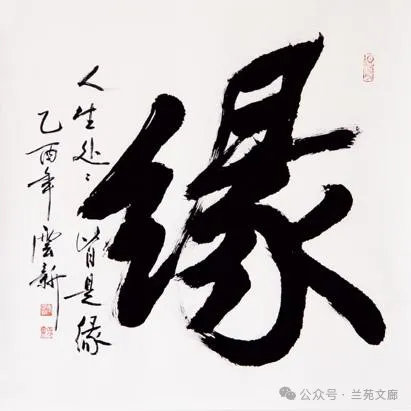 缘
人生处处皆是缘
乙酉年 云新
公众号·兰苑文廊